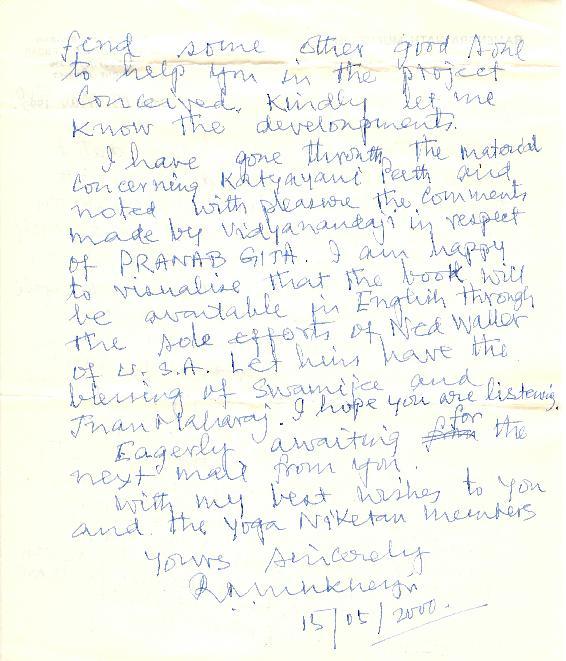 find some other good soul
to help you in the project
Conceived. Kindly let me
know the developments.
I have gone through the material
concerning Katyayani Peeth and
noted with pleasure the comments
made by Vidyanandaji in respect
of PRANAB GITA. I am happy
to visualise that the book will
be available in English through
the sole efforts of Ned Waller
of U.S.A. Let him have the
blessing of Swamijee and
Jnan Maharaj. I hope you are listening.
Eagerly awaiting for the
next mail from you.
With my best wishes to you
and the Yoga Niketan members
Yours Sincerely
R.Mukherji
15/05/2000.